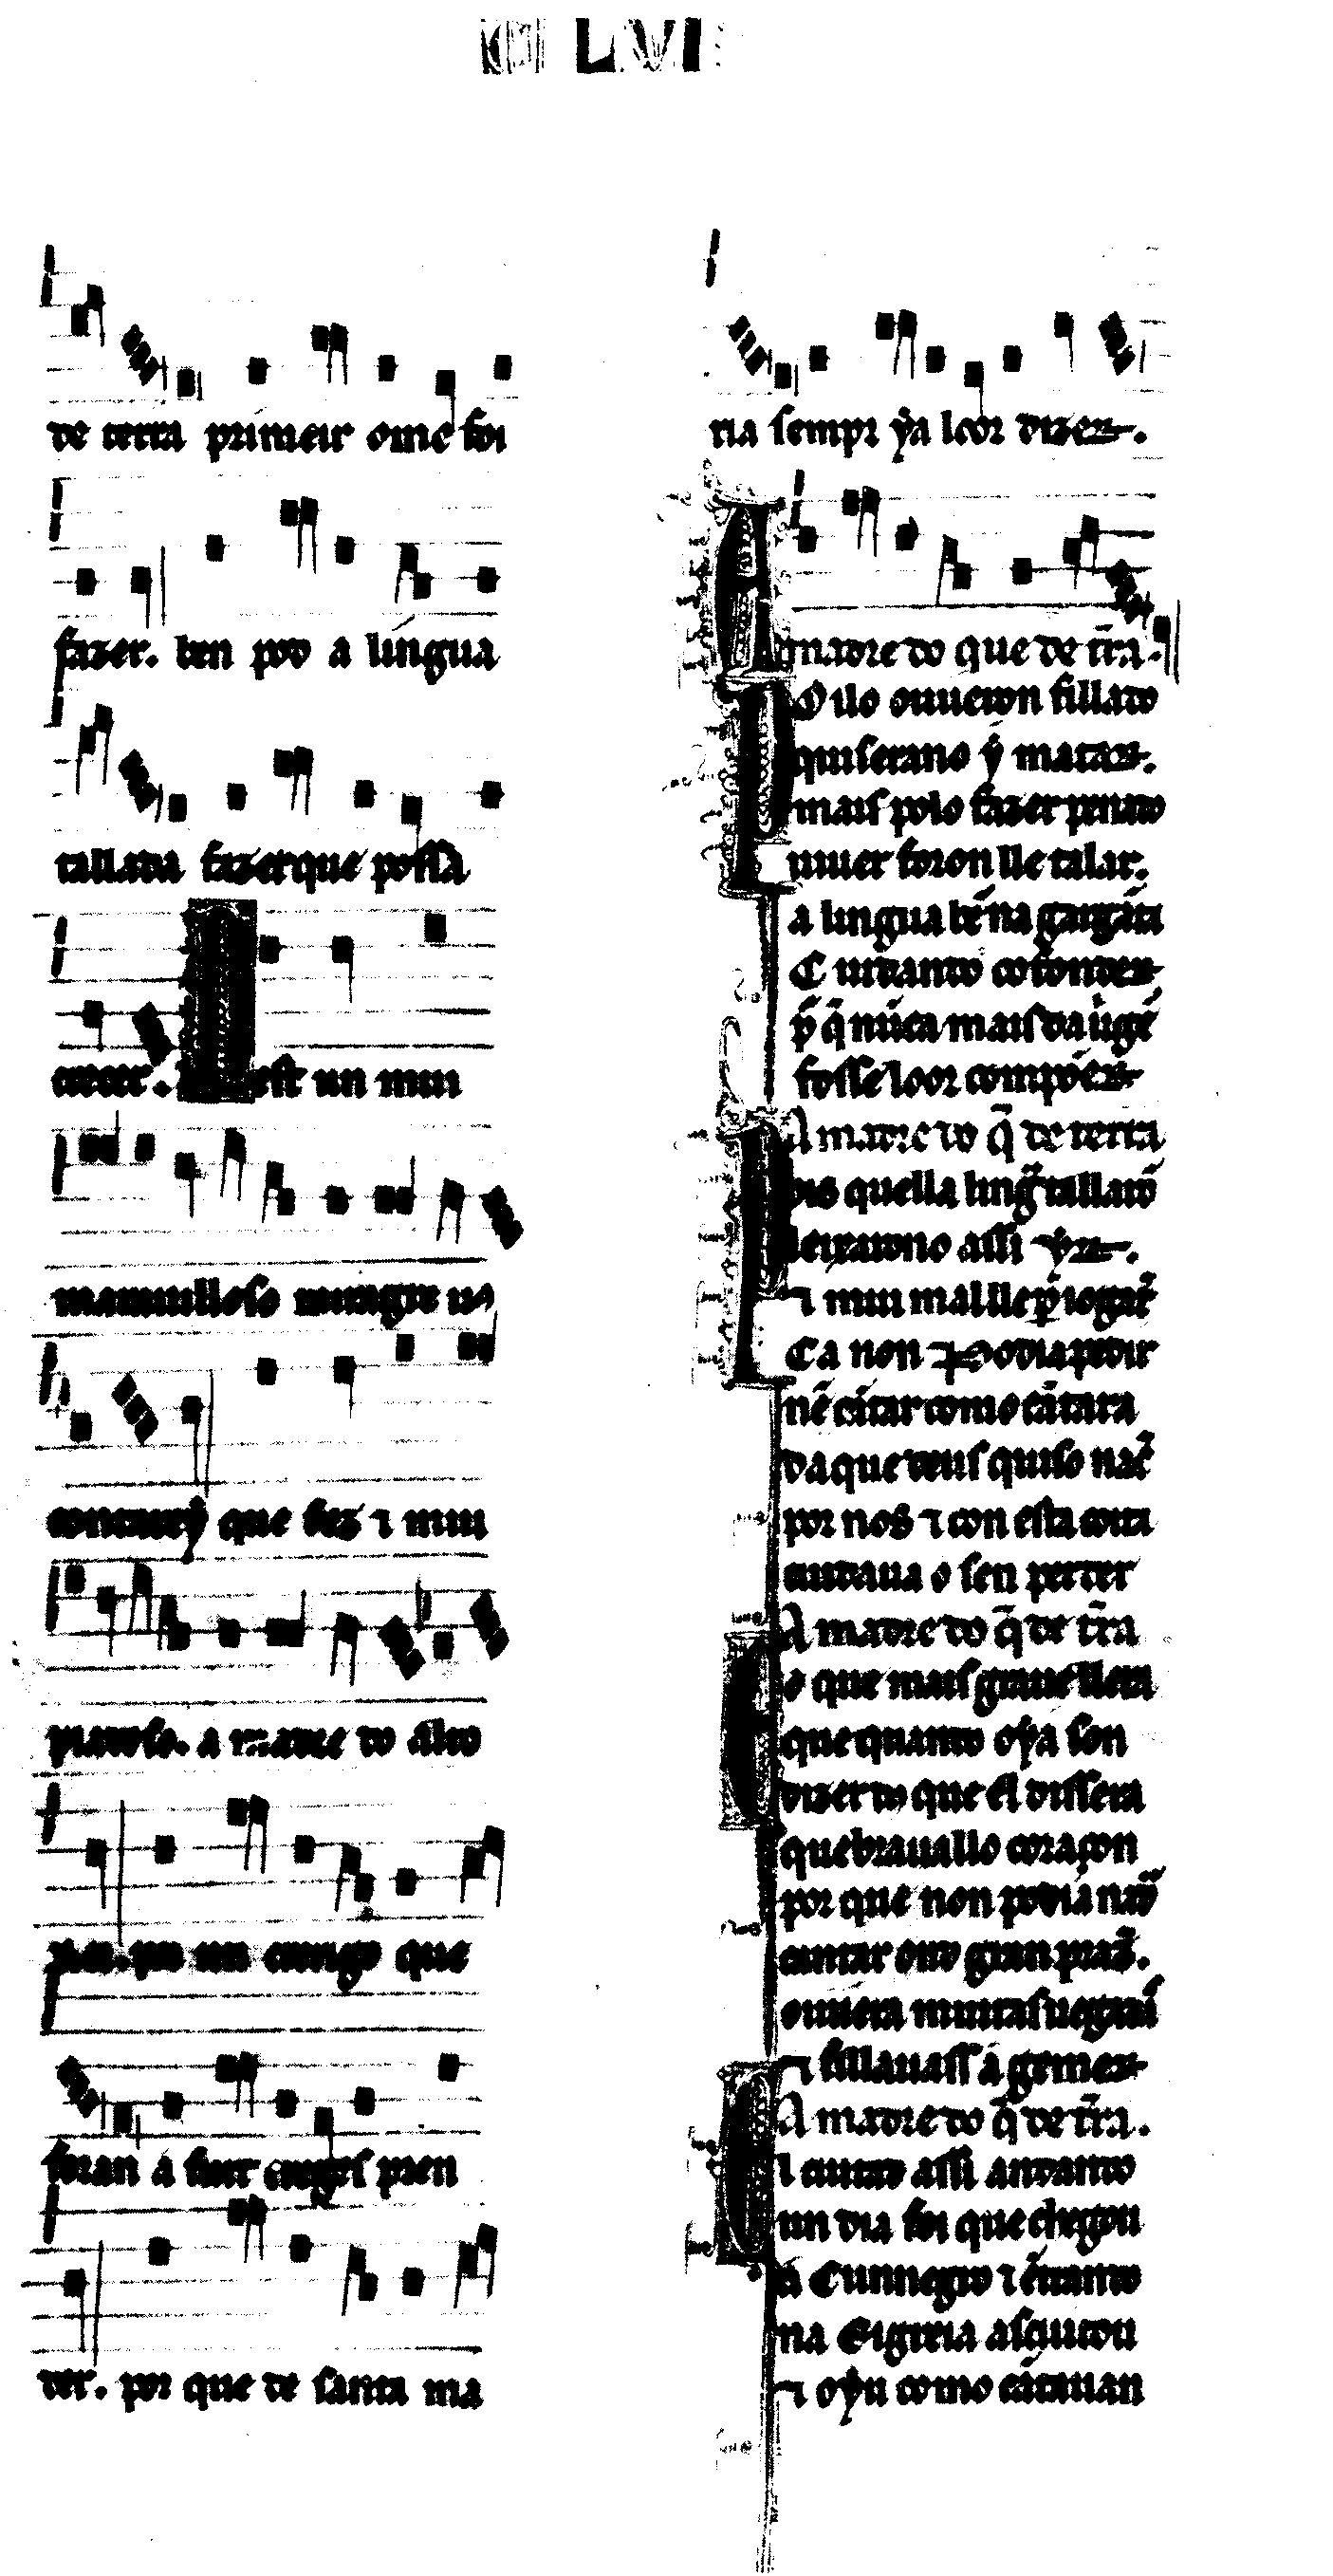 LVI
de terra primeir ome foi
fazer. ben pod a lingua
tallada fazer que possa
crecer. est un mui
marauilloso miragre uꝯ
contarey que fez ⁊ mui
piadoso. a madre do alto
Rei. por un crerigo que
foran a furt ereges pren
der. por que de santa ma
ria sempr ẏa loor dizer.
A madre do que de tr̃a.
Poilo ouueron fillado
quiserano ẏ matar.
mais polo fazer penado
uiuer foron lle talar.
a lingua bẽ na gargãta
Cuidando cofonder
p̃ q̃ nũca mais da uirgẽ
fosse loor compõer
A madre do q̃ de terra
Pois quella lingua tallarõ
leixarono assi yr.
⁊ mui mal lle p̃ iogar̃
Ca non podia pedir
nẽ cãtar como cãtara
da que deus quiso nac̃
por nos ⁊ con esta coita
cuidaua o sen perder
A madre do q̃ de tr̃a
E o que mais graue llera
que quanto oẏa son
dizer do que el dissera
quebrauallo coraçon
por que non podia nad̃
cantar ond gran praz̃.
ouuera muitas uegadas̃
⁊ fillauass a gemer
A madre do q̃ de tr̃a.
El cuidand assi andando
un dia foi que chegou
a Cunnegro ⁊ ẽtrando
na Eigreia ascuitou
⁊ oẏu como cãtauan